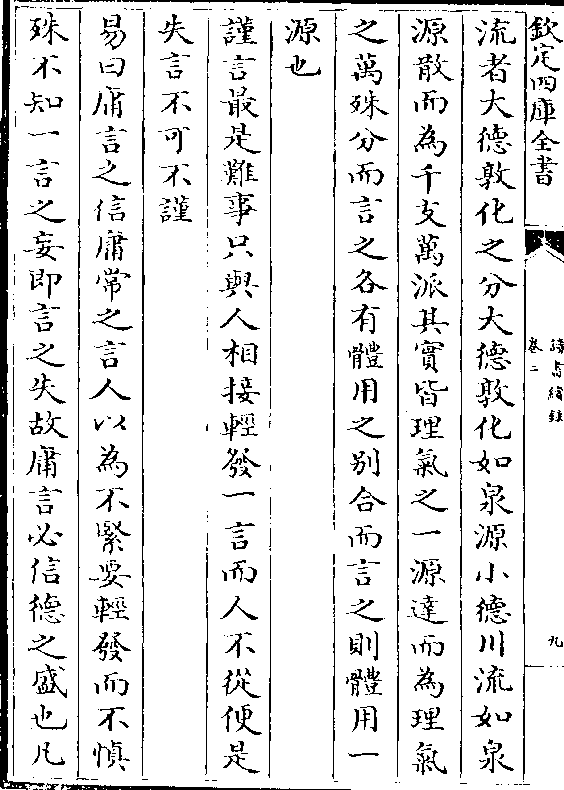 欽定四庫全書
讀書續錄
卷二
九
流者大德敦化之分大德敦化如泉源小德川流如泉
源散而為千支萬派其實皆理氣之一源達而為理氣
之萬殊分而言之各有體用之别合而言之則體用一
源也
謹言最是難事只與人相接輕發一言而人不從便是
失言不可不謹
易曰庸言之信庸常之言人以為不緊要輕發而不慎
殊不知一言之妄即言之失故庸言必信德之盛也凡